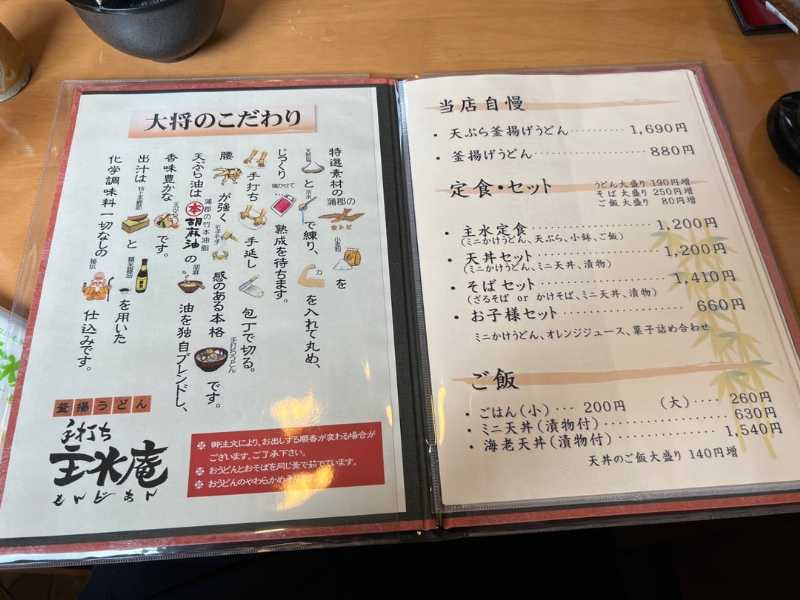 大将のこだわり
特選素材の 蒲郡の 小麦粉 を
天然塩 と で練り、 を入れて丸め、
じっくり 熟成を待ちます。
手打ち 手延し 包丁で切る。
腰 が強く 感のある本格 手打ちうどん です。
天ぷら油は 蒲郡の竹本油脂 胡麻油 の 油を独自ブレンドし、
香味豊かな です。
出汁は と を用いた
化学調味料一切なしの 秘伝 仕込みです。
釜揚うどん
手打ち
主水庵
もんどあん
御注文により、お出しする順番が変わる場合が
ございます。ご了承下さい。
おうどんとおそばを同じ釜で茹でています。
おうどんのやわらかめ
当店自慢
・天ぷら釜揚げうどん 1,690円
・釜揚げうどん 880円
定食・セット
うどん大盛り 190円増
そば大盛り 250円増
ご飯大盛り 80円増
・主水定食 1,200円
(ミニかけうどん、天ぷら、小鉢、ご飯)
・天丼セット 1,200円
(ミニかけうどん、ミニ天丼、漬物)
・そばセット 1,410円
(ざるそば or かけそば、ミニ天丼、漬物)
・お子様セット 660円
ミニかけうどん、オレンジジュース、菓子詰め合わせ
ご飯
・ごはん(小) 200円 (大) 260円
・ミニ天丼(漬物付) 630円
・海老天丼(漬物付) 1,540円
天丼のご飯大盛り 140円増